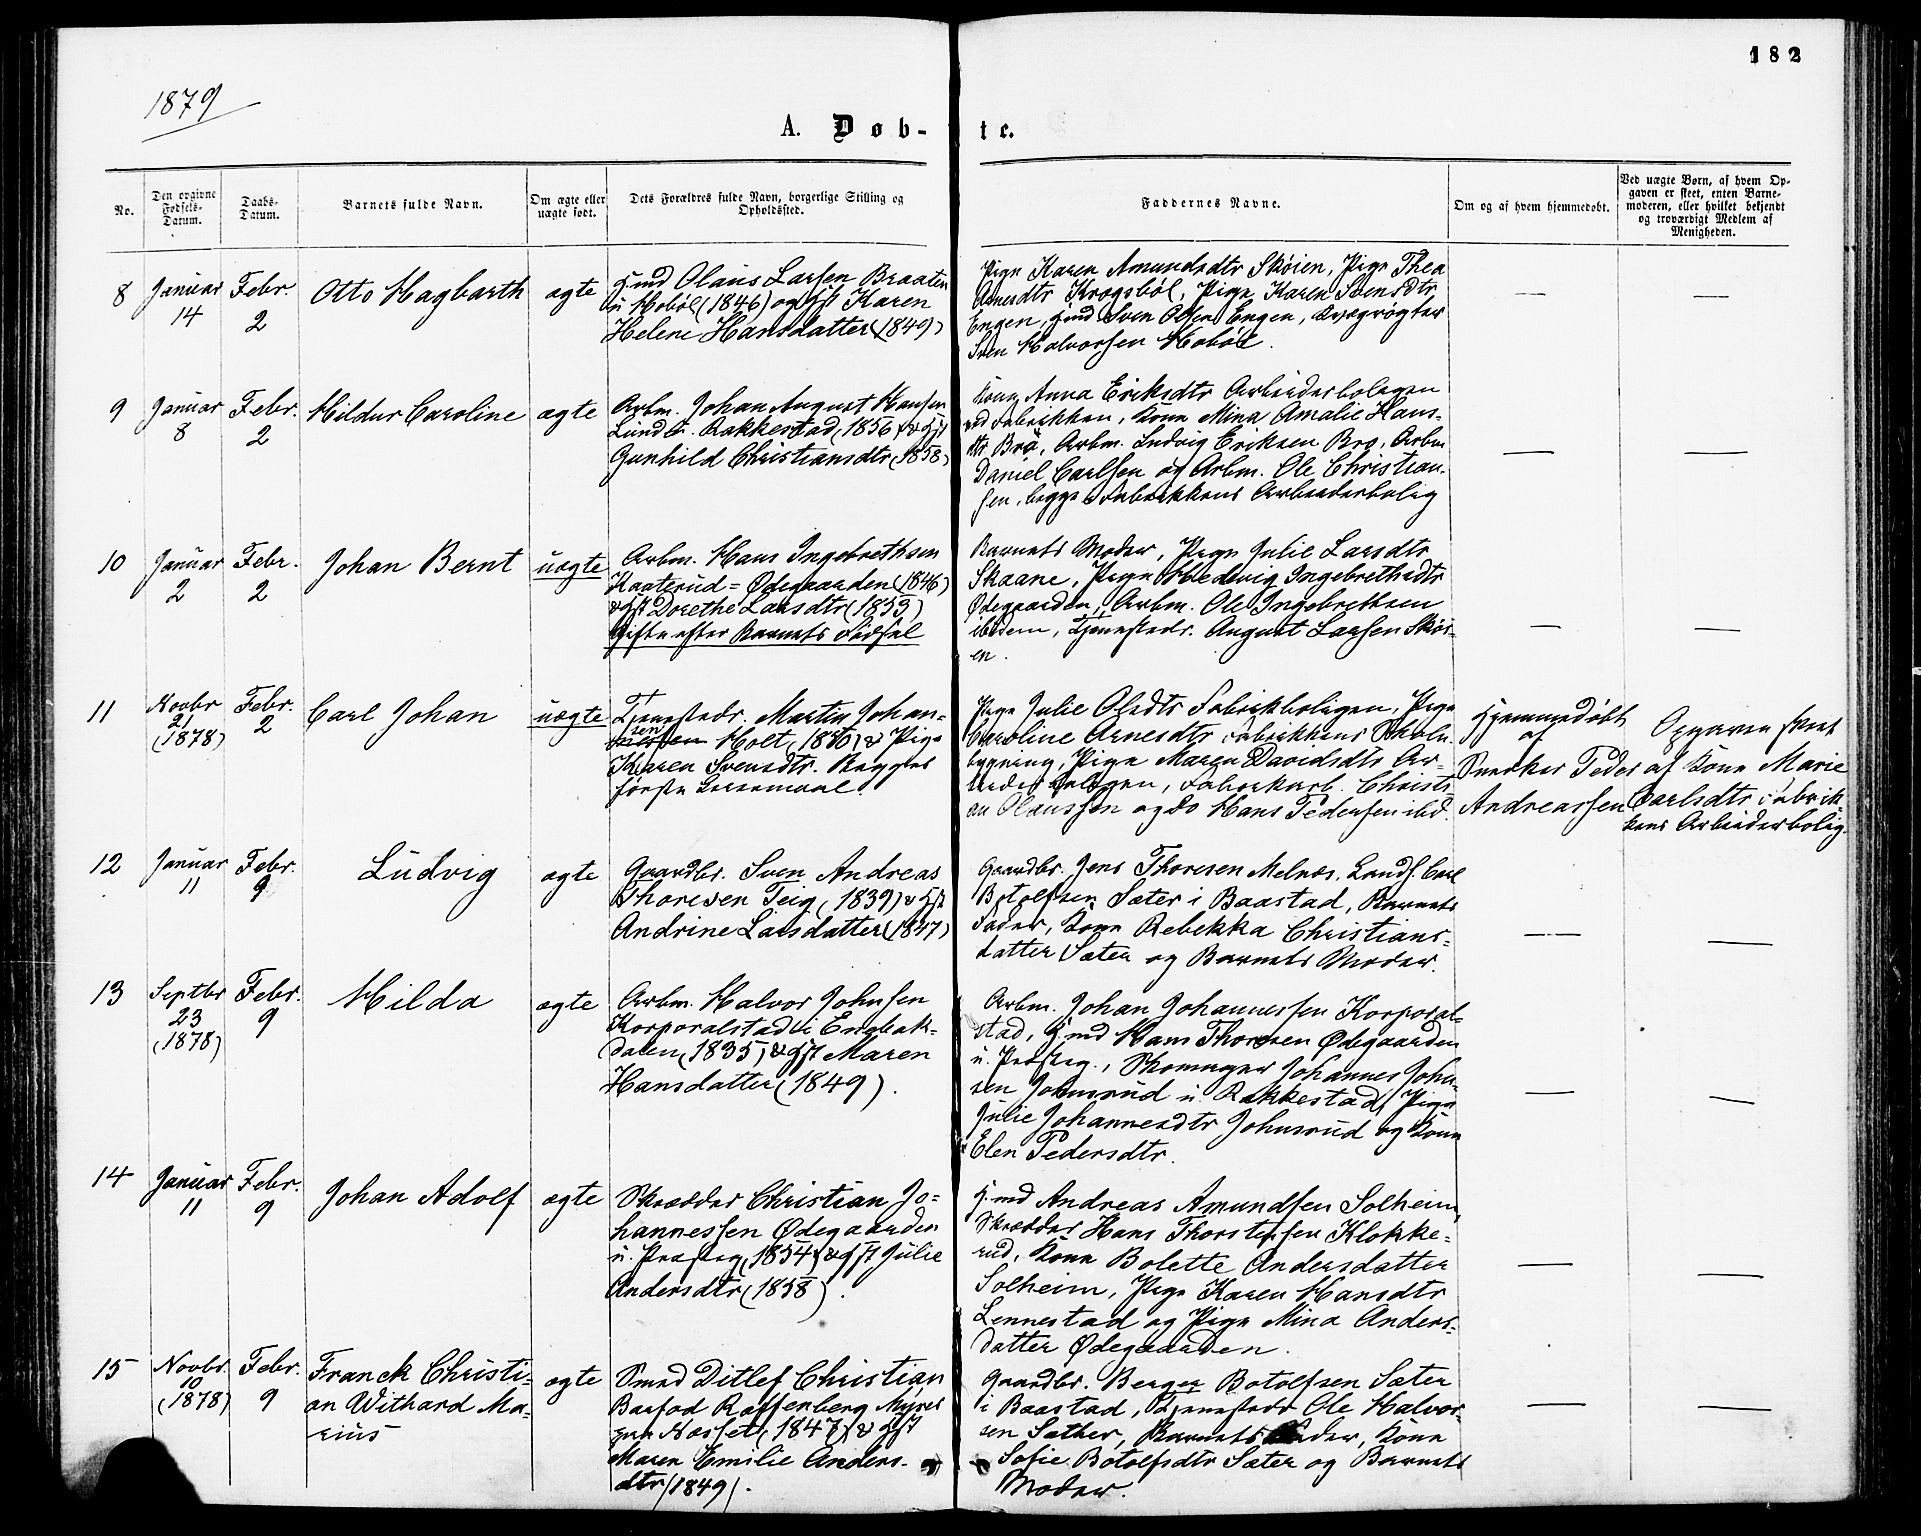 182
1879
A. Døb-te.
No.
Den opgivne Fødsels-Datum.
Daabs-Datum.
Barnets fulde Navn.
Om ægte eller uægte født.
Dets Forældres fulde Navn, borgerlige Stilling og Opholdssted.
Faddernes Navne.
Om og af hvem hjemmedøbt.
Ved uægte Børn, af hvem Opgaven er skeet, enten Barnemoderen, eller hvilket bekjendt og troværdigt Medlem af Menigheden.
8
Januar 14
Febr. 2
Otto Hagbarth
ægte
Hmd Olaus Larsen Braaten
u Hobøl (1846) og Hst Karen
Helene Hansdatter (1849)
Pige Karen Amundsdtr Skøien, Pige Thea
Arnesdtr Krogsbøl, Pige Karen Svensdtr
Engen, Hmd Sven Olsen Engen, Kvægrøgter
Sven Halvorsen Hobøl.
—
—
9
Januar 8
Febr. 2
Hildur Caroline
ægte
Arbm. Johan August Hansen
Lund u. Rakkestad (1856) & Hst
Gunhild Christiansdtr (1858)
Kone Anna Eriksdtr Arbeiderboligen
ved Fabrikken, Kone Mina Amalie Hans-
dtr Bro, Arbm. Ludvig Eriksen Bro, Arbm
Daniel Carlsen og Arbm. Ole Christian-
sen, begge Fabrikkens Arbeiderbolig
—
—
10
Januar 2
Febr. 2
Johan Bernt
uægte
Arbm. Hans Ingebrethsen
Kaaterud = Ødegaarden (1846)
& Hst Dorethe Larsdtr (1853)
Gifte efter Barnets Fødsel
Barnets Moder, Pige Julie Larsdtr
Skaane, Pige Hedevig Ingebrethsdtr
Ødegaarden, Arbm. Ole Ingebrethsen
ibidem, Tjenestedr. August Larsen Skøi-
en.
—
—
11
Novbr 21 (1878)
Febr. 2
Carl Johan
uægte
Tjenestedr. Martin Johan-
sen Holt (1856) & Pige
Karen Svensdtr. Begges
første Leiermaal.
Pige Julie Olsdtr Fabrikboligen, Pige
Caroline Arnesdtr Fabrikkens Skole-
bygning, Pige Maren Davidsdtr Ar-
beiderboligen, Fabrikarb. Christi-
an Olaussen og do Hans Pedersen ibd.
Hjemmedøbt
af
Snedker Peder
Andreassen
Opgaven skeet
af Kone Marie
Carlsdtr Fabrik-
kens Arbeiderbolig
12
Januar 11
Febr. 9
Ludvig
ægte
Gaardbr. Sven Andreas
Thoresen Teig (1839) & Hst
Andrine Larsdatter (1847)
Gaardbr. Jens Thoresen Melnæs, Landh. Carl
Botolfsen Sæter i Baastad, Barnets
Fader, Kone Rebekka Christians-
datter Sæter og Barnets Moder.
—
—
13
Septbr 23 (1878)
Febr. 9
Hilda
ægte
Arbm. Halvor Johnsen
Korporalstad i Enebak-
dalen (1835) & Hst Maren
Hansdatter (1849).
Arbm. Johan Johannessen Korporal-
stad, Hmd Hans Thoresen Ødegaarden
u. Præsteg., Skomager Johannes John-
sen Johnsrud u. Rakkestad, Pige
Julie Johannesdtr Johnsrud og Kone
Elen Pedersdtr.
—
—
14
Januar 11
Febr. 9
Johan Adolf
ægte
Skrædder Christian Jo-
hannessen Ødegaarden
u. Præsteg (1854) & Hst Julie
Andersdtr (1858).
Hmd Andreas Amundsen Solheim,
Skrædder Hans Thorstensen Klokke-
rud, Kone Bolette Andersdatter
Solheim, Pige Karen Hansdtr
Lennestad og Pige Mina Anders-
datter Ødegaarden.
—
—
15
Novbr. 10 (1878)
Febr. 9
Franck Christi-
an Withard Ma-
rius
ægte
Smed Ditlef Christian
Barfod Raffenberg Myrer
Næsset (1847) & Hst
Maren Emilie Anders-
dtr (1849).
Gaardbr. Berger Botolfsen Sæter
i Baastad, Tjenestedr Ole Halvor-
sen Sæther, Barnets Fader, Kone
Sofie Botolfsdtr Sæter og Barnets
Moder.
—
—